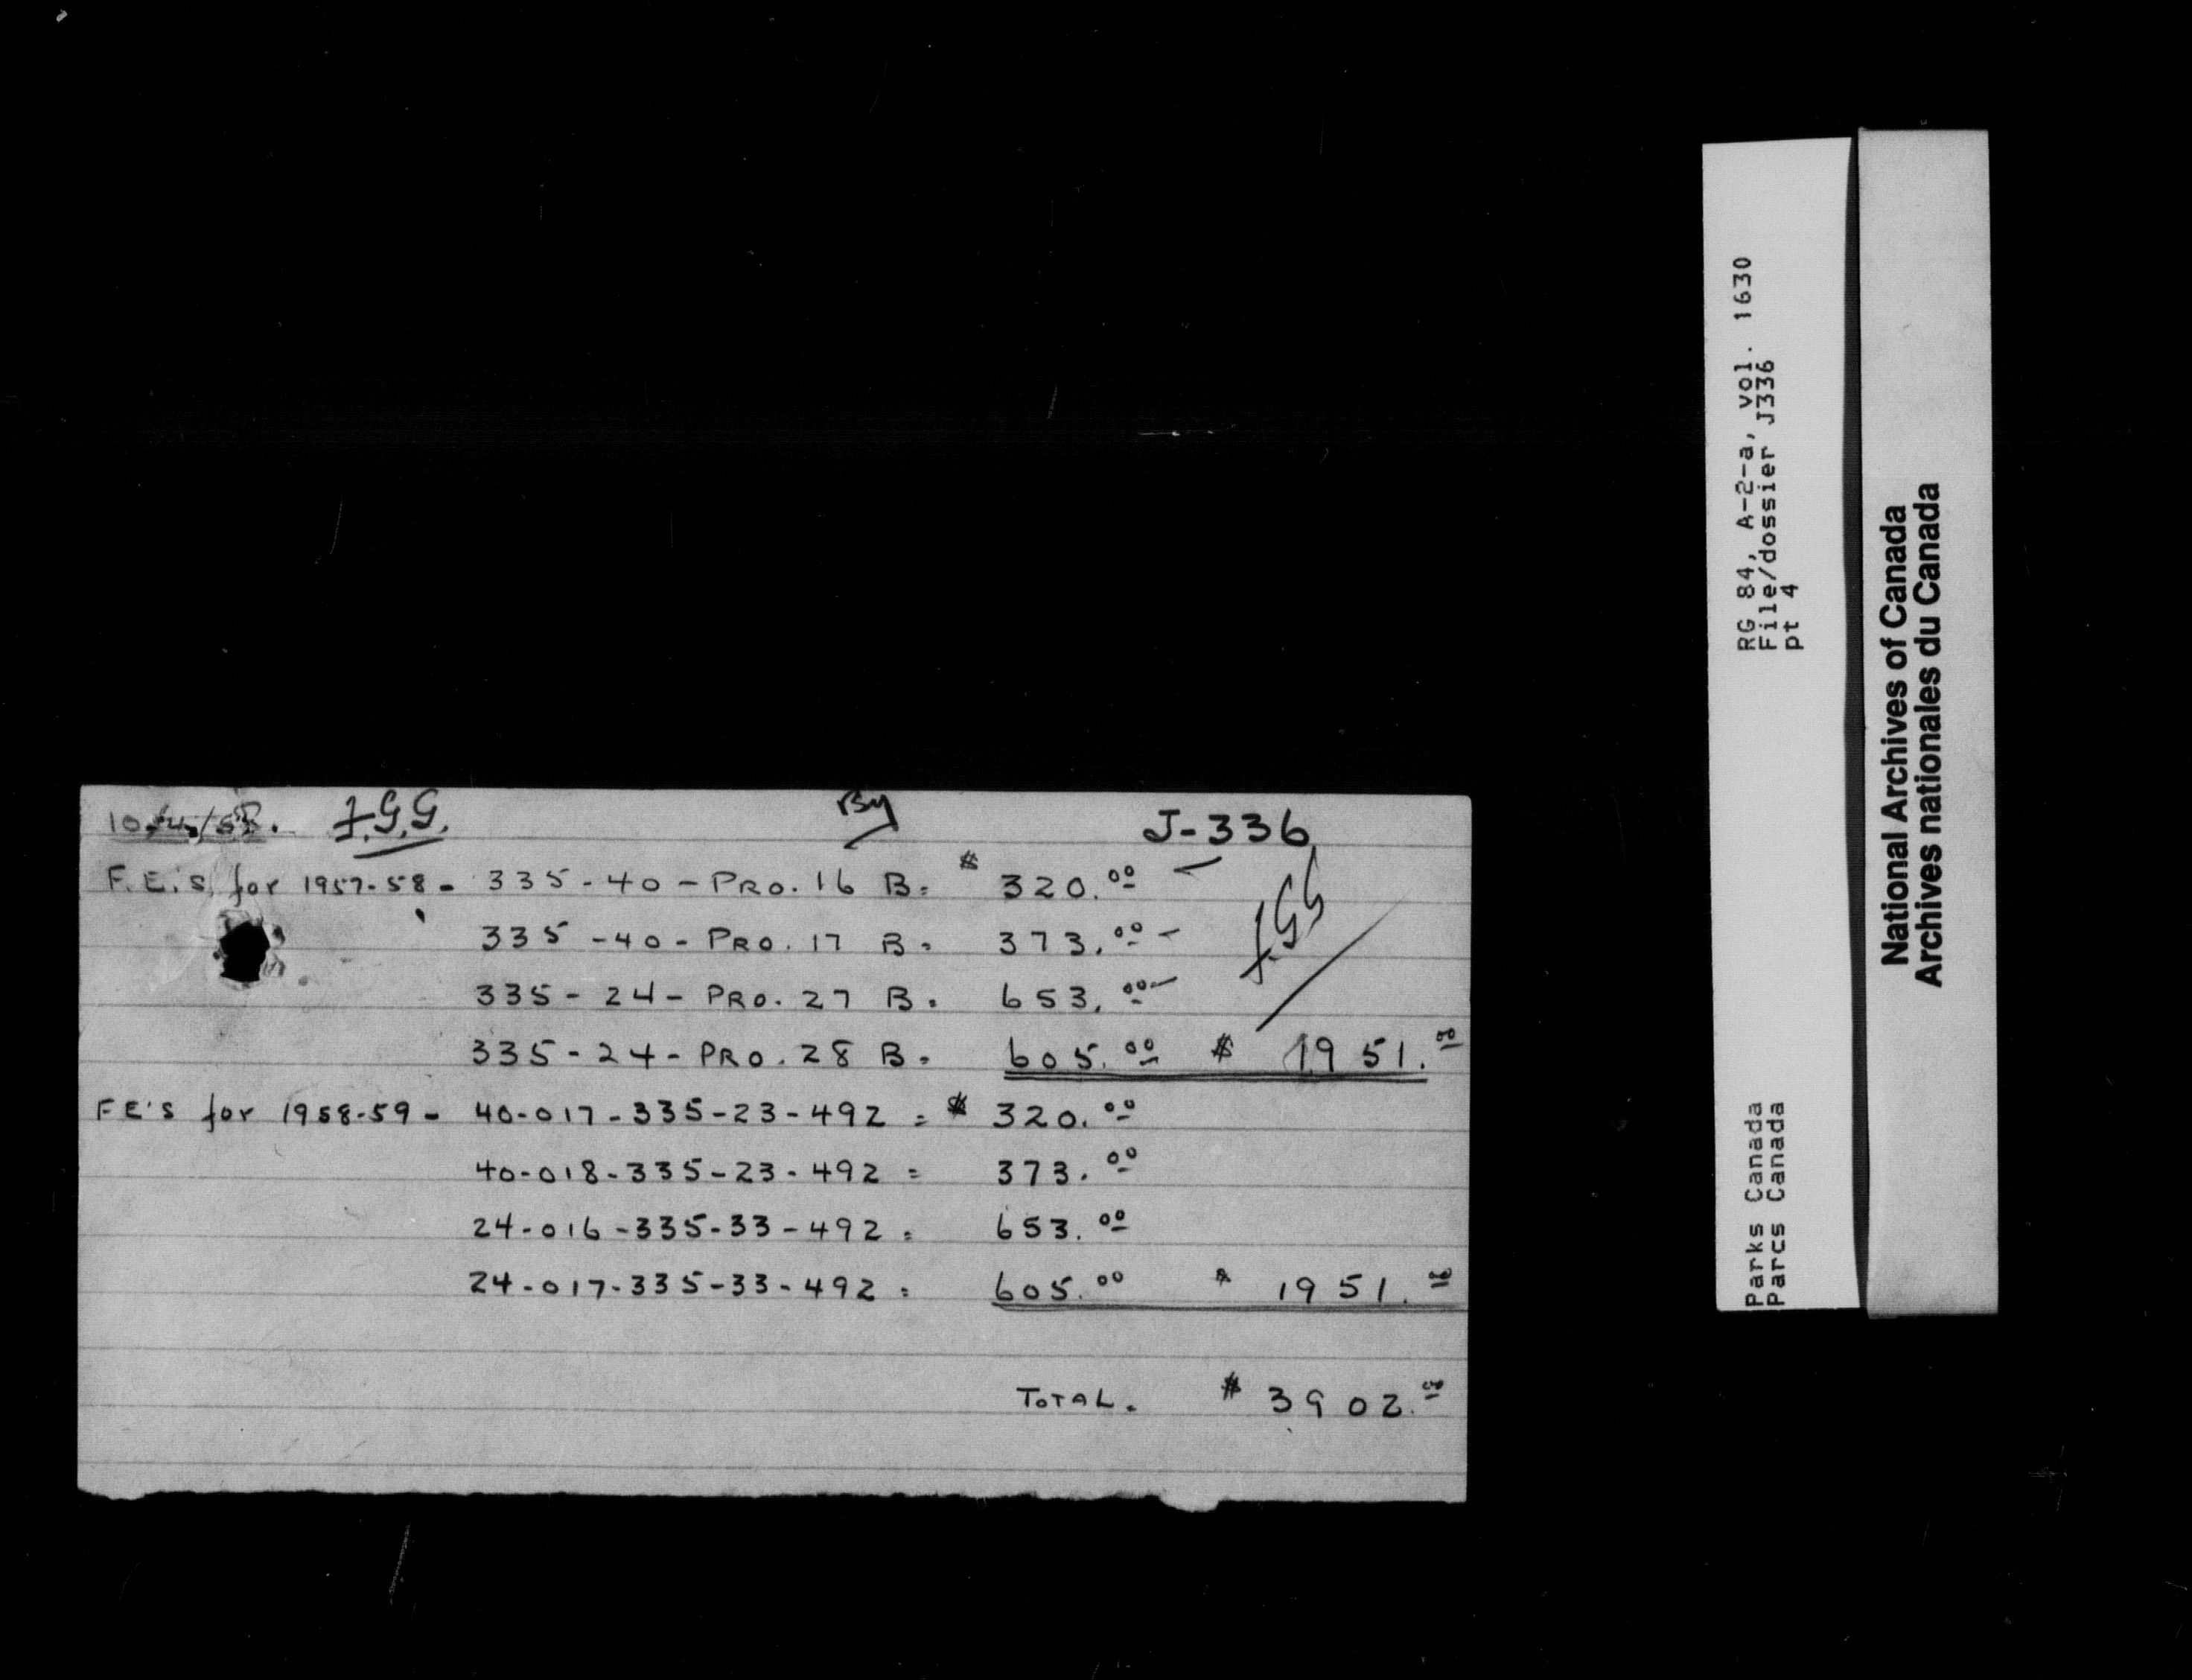 10/4/58. F.G.G. By J-336
F.E.'s for 1957-58 - 335-40-PRO. 16 B. $ 320.00
335-40-PRO. 17 B. 373.00
335-24-PRO. 27 B. 653.00
335-24-PRO. 28 B. 605.00 $ 1951.00
F.G.G
FE's for 1958-59 - 40-017-335-23-492 = $ 320.00
40-018-335-23-492 = 373.00
24-016-335-33-492 = 653.00
24-017-335-33-492 = 605.00 $ 1951.00
TOTAL. $ 3902.00
RG 84, A-2-a, vol. 1630
File/dossier J336
pt 4
Parks Canada
Parcs Canada
National Archives of Canada
Archives nationales du Canada